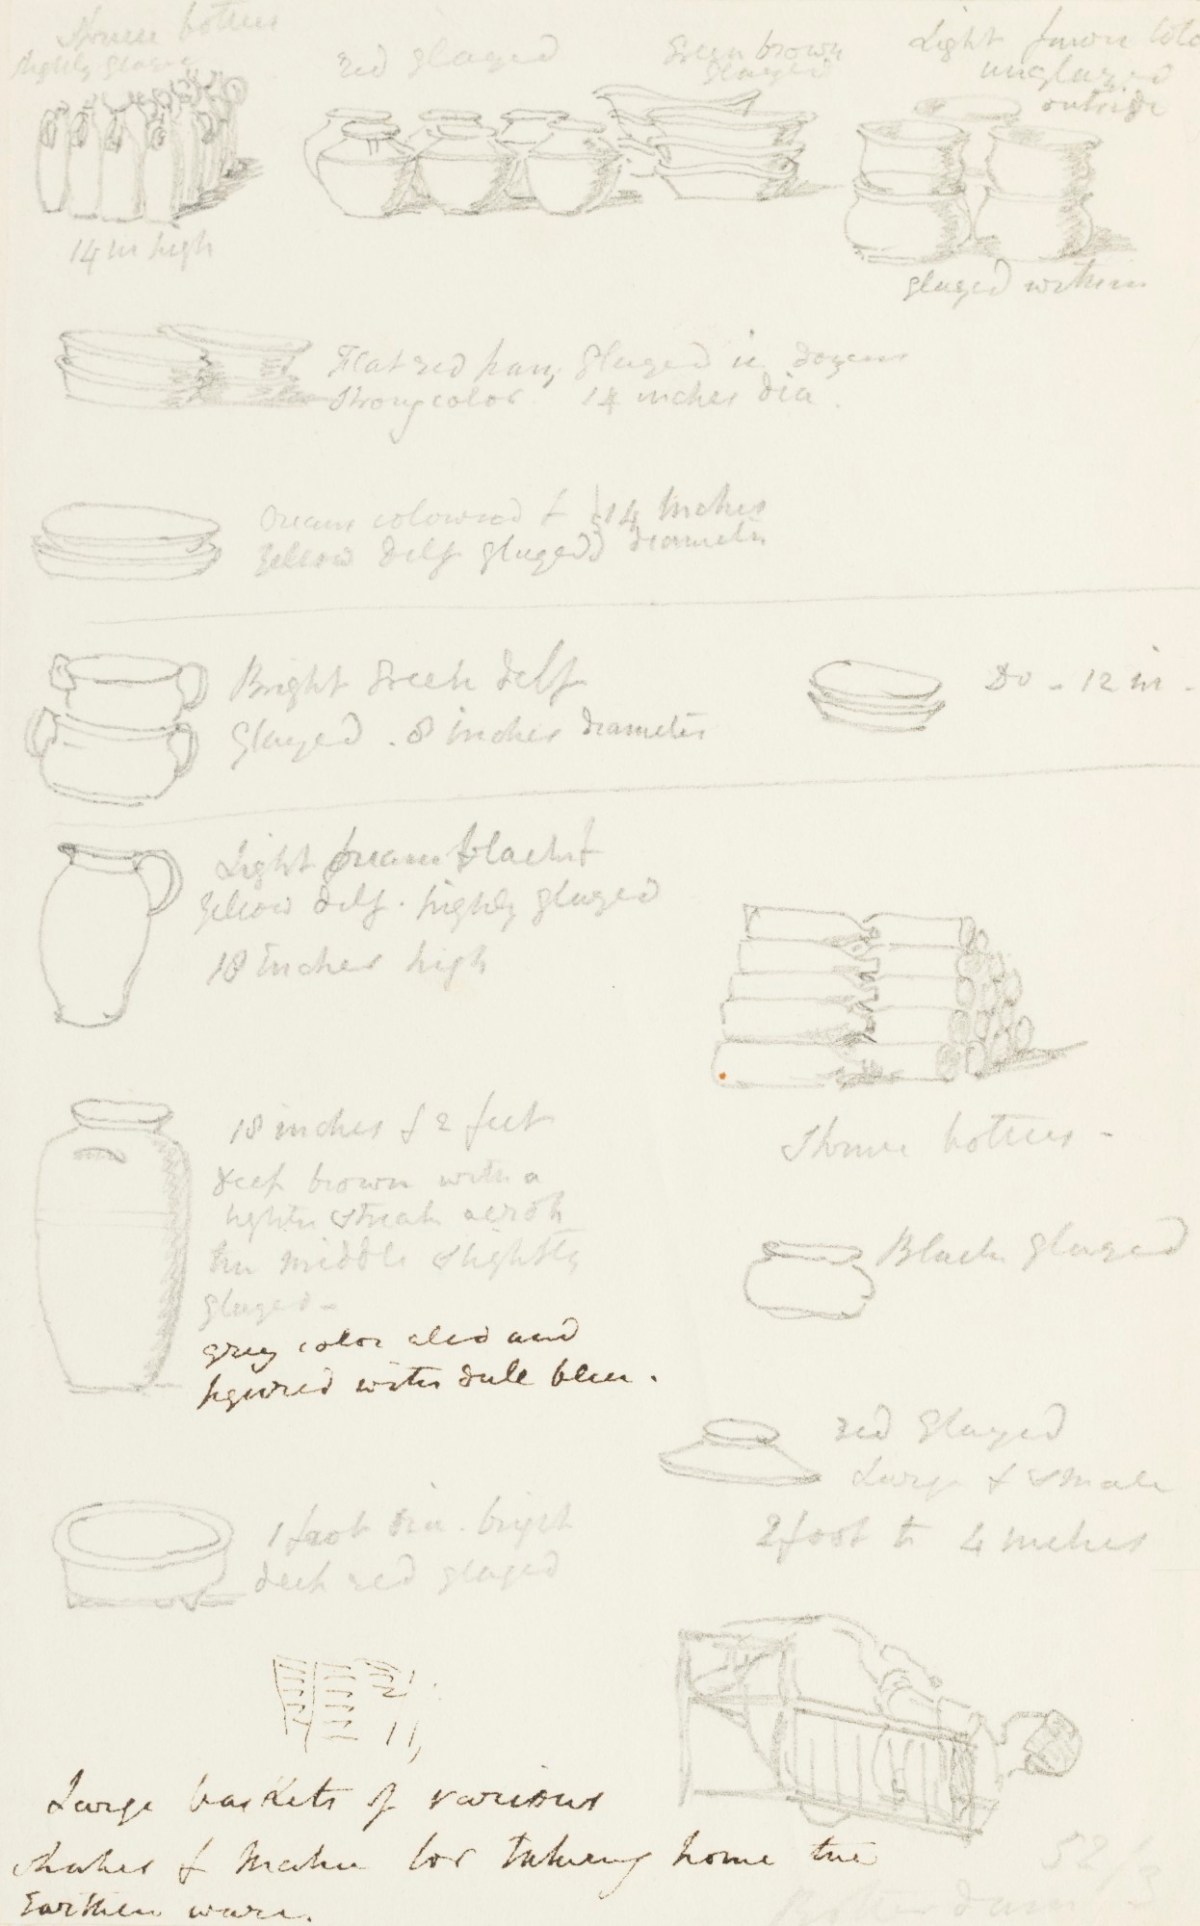 Stone bottles
highly glazed
14 in high
red glazed
Green brown
glazed
Light fawn colo
unglazed
outside
glazed within
Flat red pans glazed in dozens
strong color 14 inches dia.
Cream coloured & 14 Inches
Yellow Delf glazed diameter
Bright Green Delf
Glazed . 8 inches diameter
Do - 12 in -
Light cream black &
Yellow Delf . highly glazed
18 Inches high
Stone bottles -
18 inches & 2 feet
Deep brown with a
lighter streak across
the middle slightly
glazed -
grey color also and
figured with dull blue .
Black glazed
red Glazed
Large & small
2 foot to 4 inches
1 foot dia . bright
deep red glazed
Large baskets of various
shapes & make for taking home the
Earthen ware .
52/3
Rotterdam